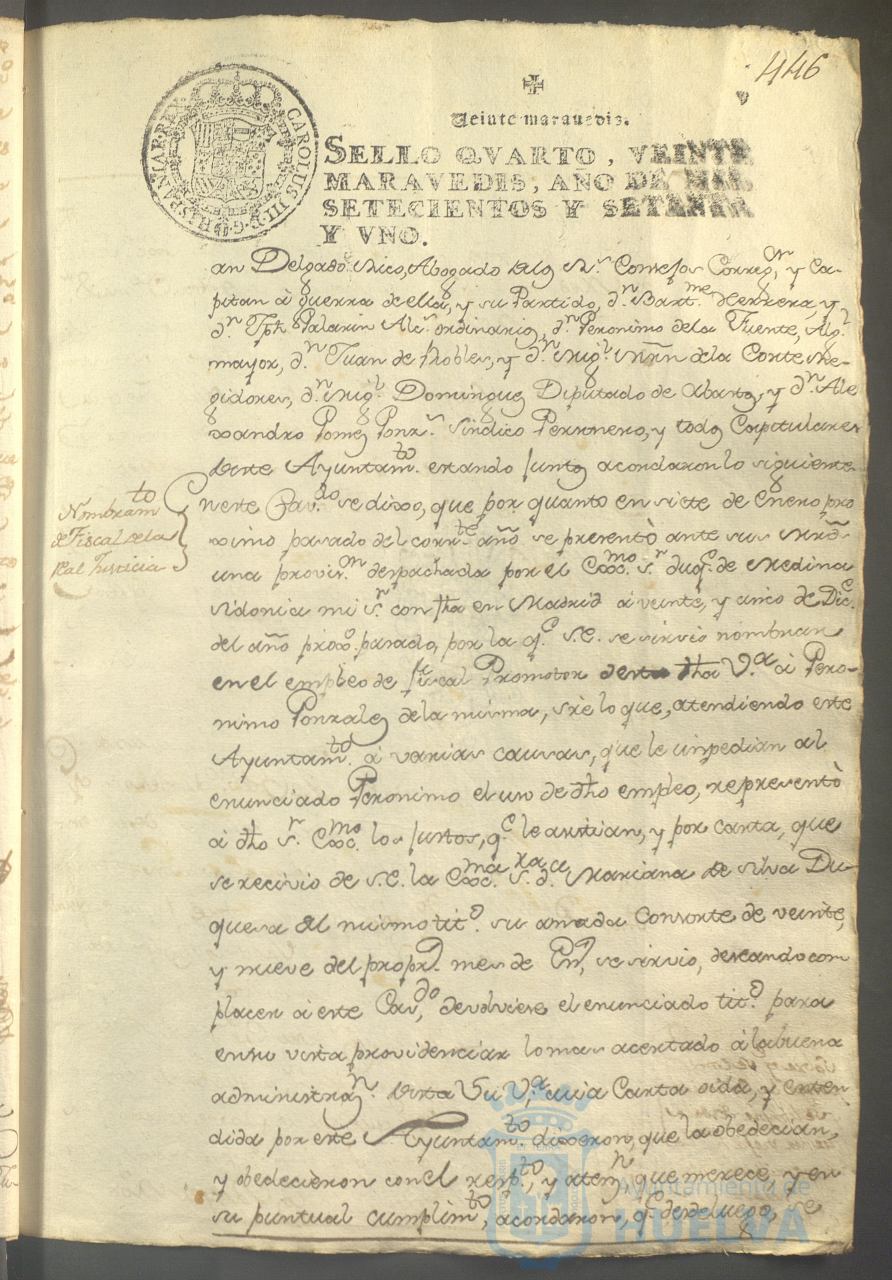 446
Veinte maravedis.
SELLO QVARTO, VEINTE
MARAVEDIS, AÑO DE MIL
SETECIENTOS Y SETENTA
Y VNO.
CAROLUS III D G HISPANIAR REX
an Delgado Rico, Abogado de los Rs. Consejos Corregor. y Ca-
pitan à guerra de ella, y su Partido, dn. Bartme. de Herrera, y
dn. Jph Palarin Alce. ordinarios, dn. Geronimo de la Fuente, Algl.
mayor, dn. Juan de Robles, y dn. Migl. Mrn de la Corte Re-
gidores, dn. Migl. Dominguez Diputado de Abastos, y dn. Ale
xandro Gomez Gonzs. Sindico Personero, y todos Capitulares
deste Ayuntamto. estando juntos acordaron lo siguiente
Nombramto
de Fiscal de la
Real Justicia
En este Cavdo. se dixo, que por quanto en siete de Enero pro
ximo pasado del corrte. año se presentò ante sus Mrds
una provisn. despachada por el Exmo. Sr. duqe. de Medina
Sidonia mi Sr. con fha en Madrid à veinte, y cinco de Dice.
del año proxo. pasado, por la qe. S.E. se sirvio nombrar
en el empleo de fiscal Promotor desta dha Va. à Gero-
nimo Gonzalez de la misma, sre lo que, atendiendo este
Ayuntamto. à varias causas, que le inpedian al
enunciado Geronimo el uso de dho empleo, representò
à dho Sr. Exmo. los justos, qe. le asistian, y por carta, que
se recivio de S.E. la Exma. Sra. da. Mariana de Silva Du-
quesa del mismo tito. su amada Consorte de veinte,
y nueve del proprio mes de En, se sirvio, deseando com
placer à este Cavdo, devolviese el enunciado tito. para
en su vista providenciar lo mas acertado à la buena
administran. desta Su Va. cuia Carta oida, y enten
dida por este Ayuntamto. dixeron, que la obedecian,
y obedecieron con el respto., y atenn. que merece, y en
su puntual cumplimto, acordaron, qe. desde luego, se
Ayuntamiento de
HUELVA